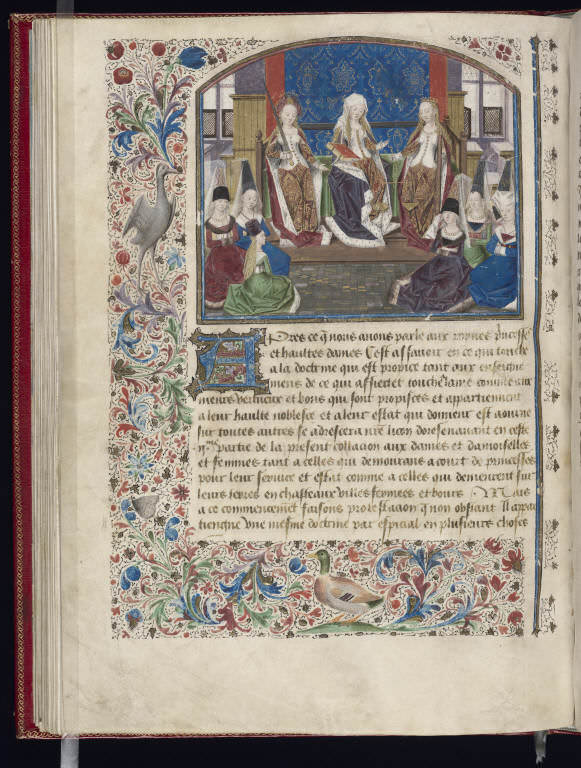 Apres ce q̄ nous auons parle aux roynes princesses
et haultes dames Cest assauoir en ce qui touche
a la doctrine qui est propice tant aux enseigne
mens de ce qui affiert et touche lame comme aux
meurs vertueux et bons qui sont propices et appartiennent
a leur haulte noblesse et a leur estat qui doiuent est
sur toutes autres se adrescera nr̄e lecon doresenauant en ceste
ij.e partie de la present collacion aux dames et damoiselles
et femmes tant a celles qui demourans a court de princesses
pour leur seruice et estat comme a celles qui demeurent sur
leurs terres en chasteaux villes fermees et bours Mais
a ce commencemēt faisons protestacion q̄ non obstant Il appar
tiengne vne mesme doctrine par especial en plusieurs choses